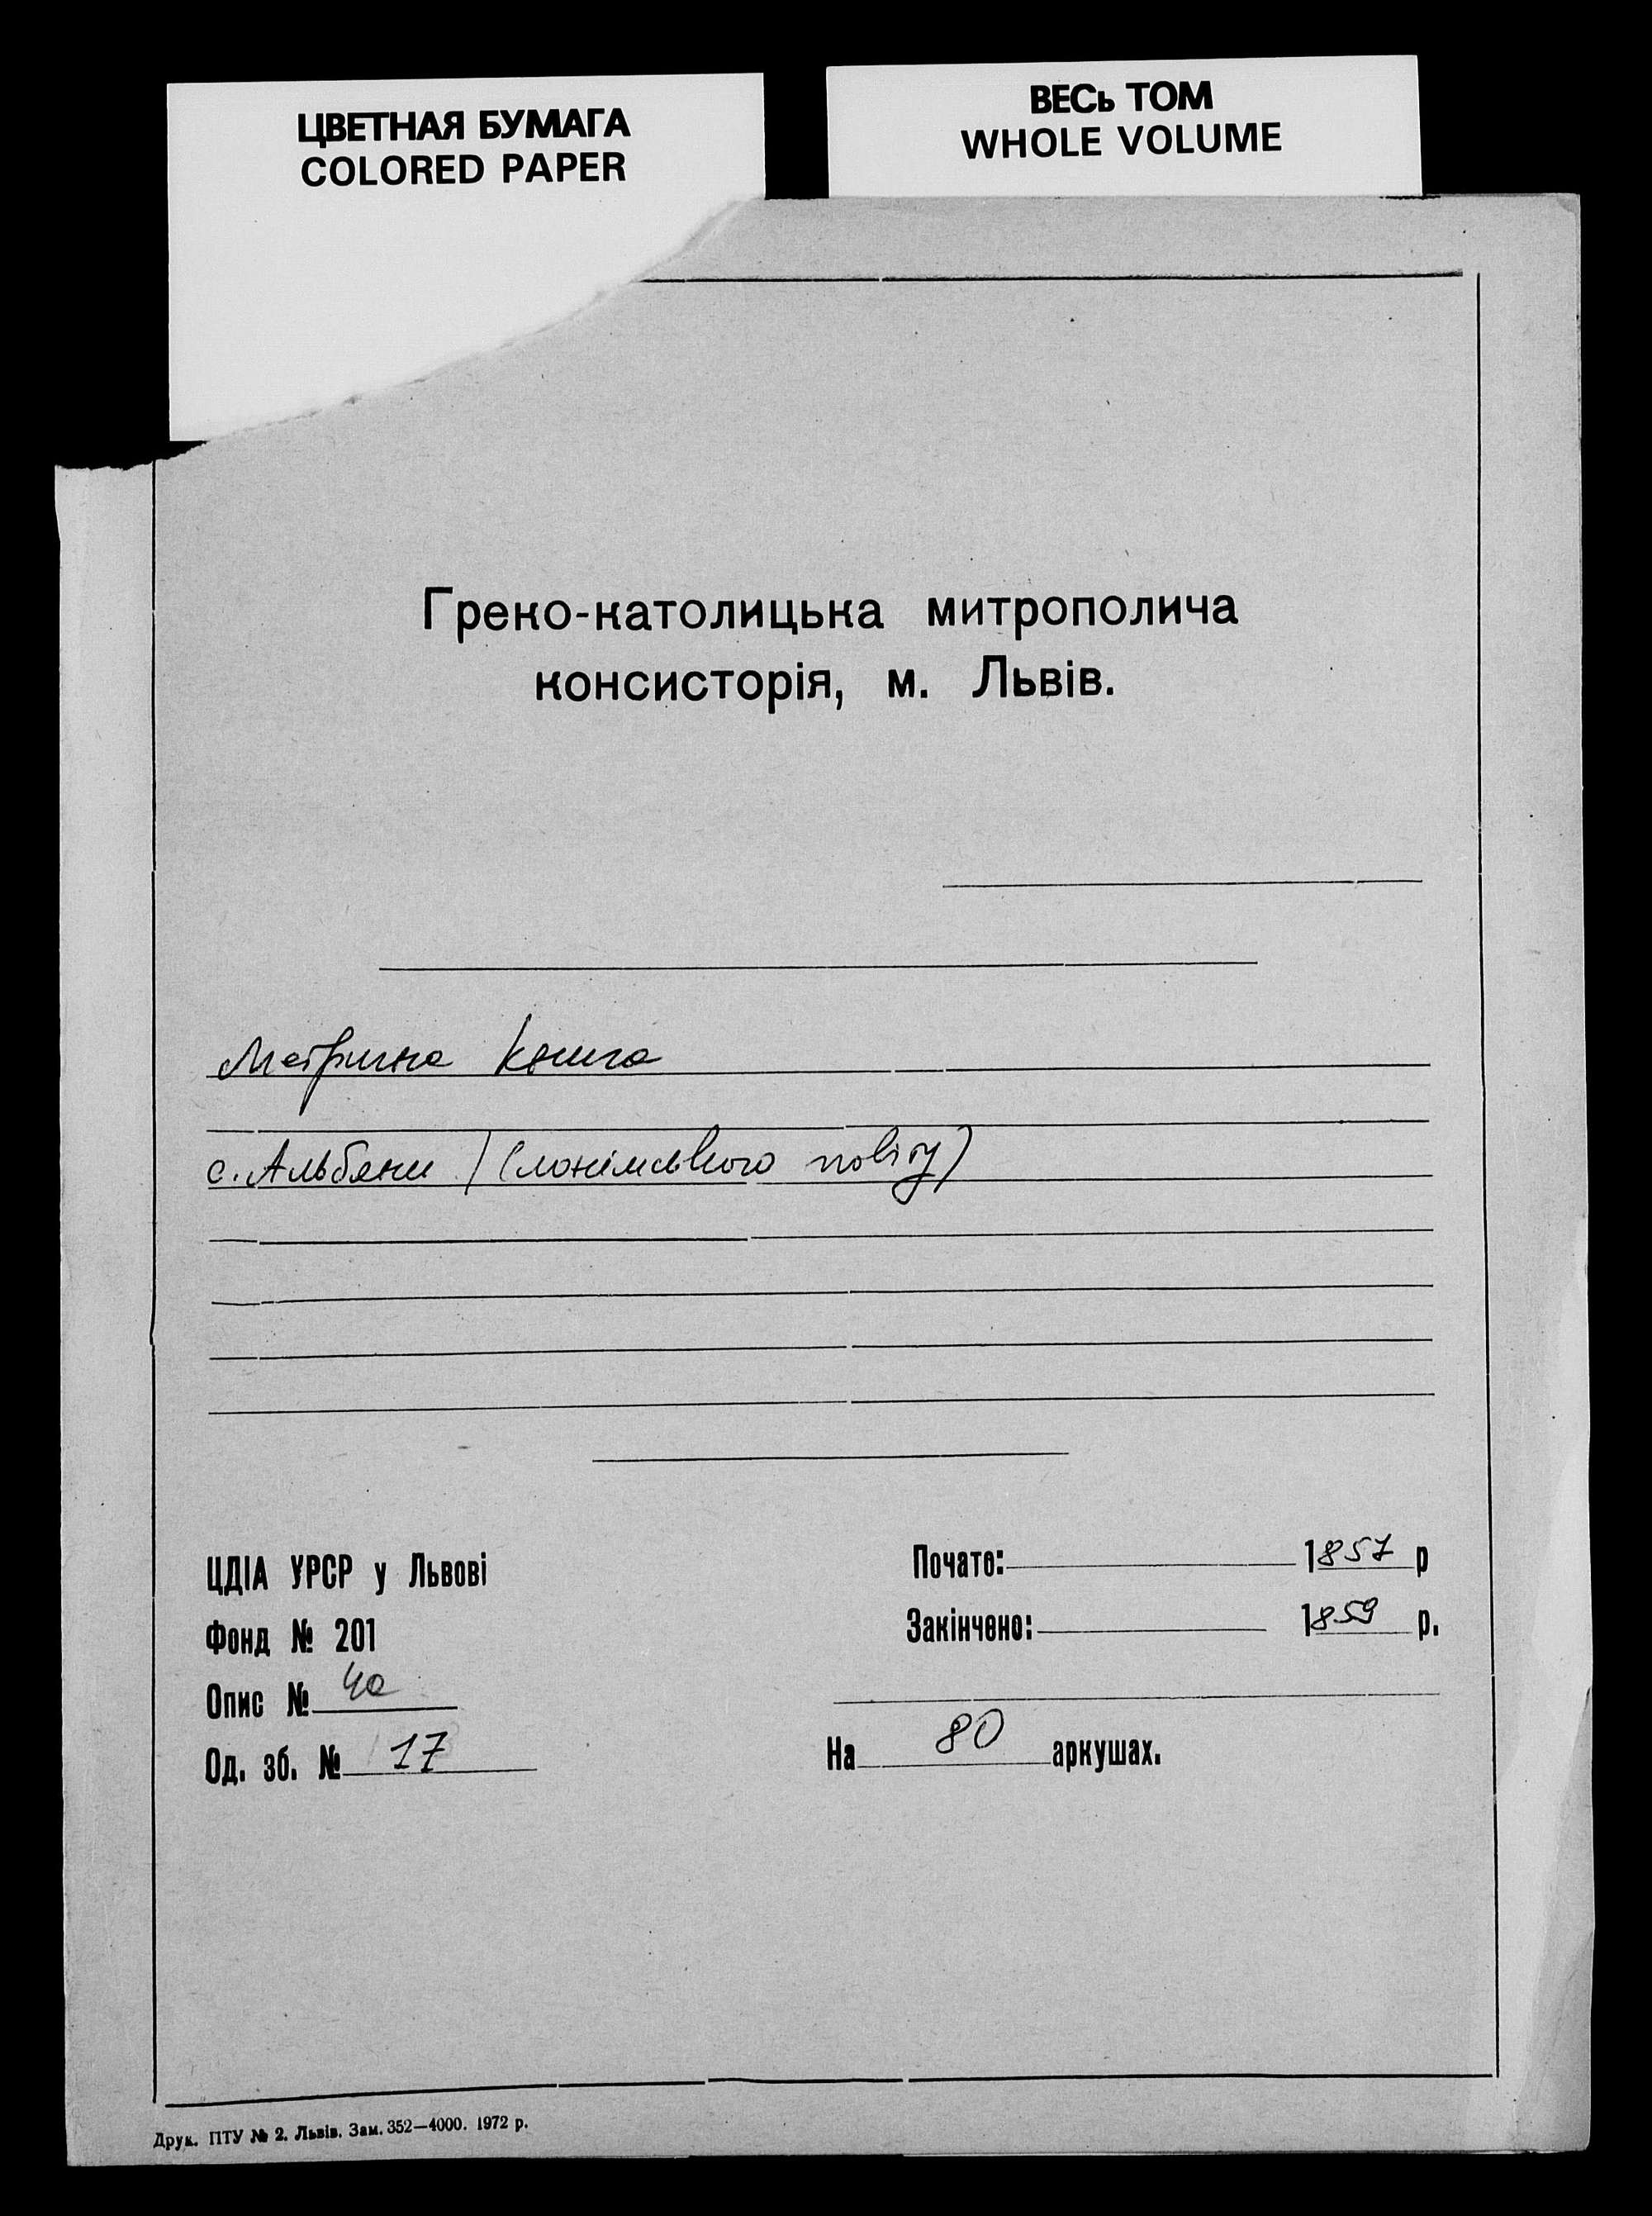 ЦВЕТНАЯ БУМАГА
COLORED PAPER
ВЕСЬ ТОМ
WHOLE VOLUME
Греко-католицька митрополича
консисторія, м. Львів.
Метрична книга
с. Альбяни (Слонімського повіту)
ЦДІА УРСР у Львові
Фонд № 201
Опис № 4а
Од. зб. № 17
Почато: 1857 р
Закінчено: 1859 р.
На 80 аркушах.
Друк. ПТУ № 2. Львів. Зам. 352—4000. 1972 р.